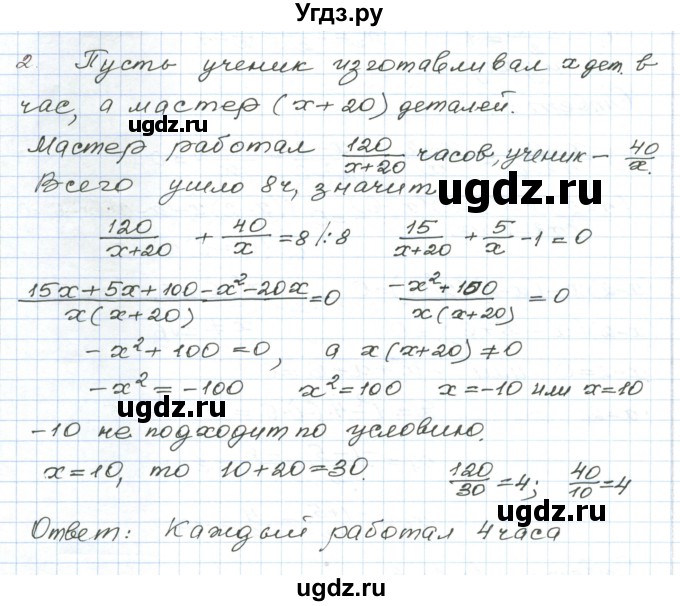 Угдз.ру
2. Пусть ученик изготавливал x дет. в
час, а мастер (x+20) деталей.
угдз.ru
Мастер работал 120/(x+20) часов, ученик – 40/x.
Всего ушло 8ч, значит
угдз.ru
120/(x+20) + 40/x = 8 /:8   15/(x+20) + 5/x - 1 = 0
(15x+5x+100-x²-20x)/(x(x+20)) = 0   (-x²+100)/(x(x+20)) = 0
-x²+100=0, а x(x+20)≠0
-x²=-100   x²=100   x=-10 или x=10
угдз.ru
-10 не подходит по условию.
x=10, то 10+20=30.   120/30=4; 40/10=4
угдз.ru
Ответ: Каждый работал 4 часа
угдз.ru